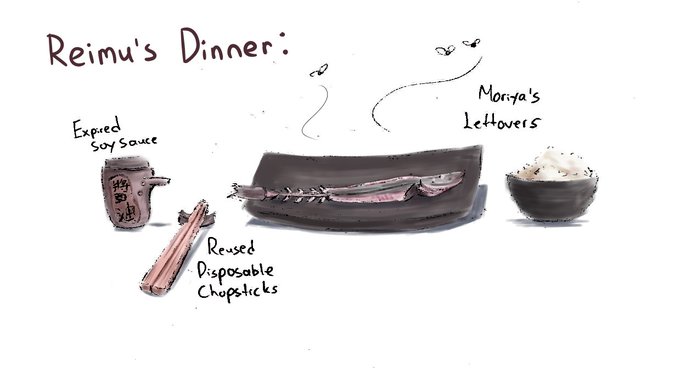 Reimu's Dinner:
Moriya's
Leftovers
Expired
soy sauce
醤油
Reused
Disposable
Chopsticks